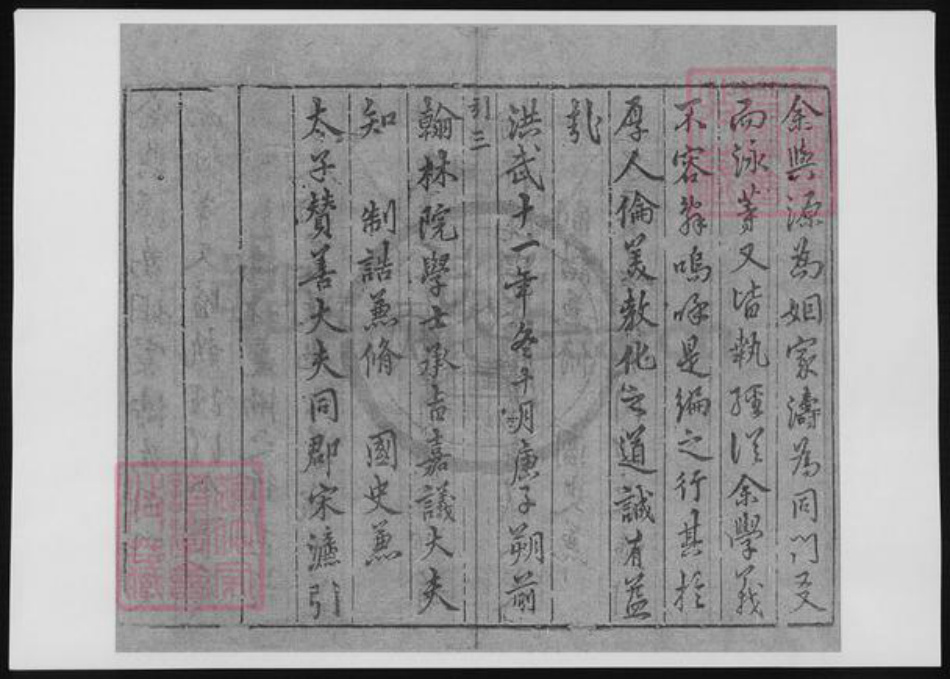 余與源為姻家濤為同門友
而泳等又皆執經從余學義
不容辭嗚呼是編之行其於
厚人倫美教化之道誠有益
哉
洪武十一年冬十月庚子朔前
引三
翰林院學士承旨嘉議大夫
知 制誥兼脩 國史兼
太子贊善大夫同郡宋濂引